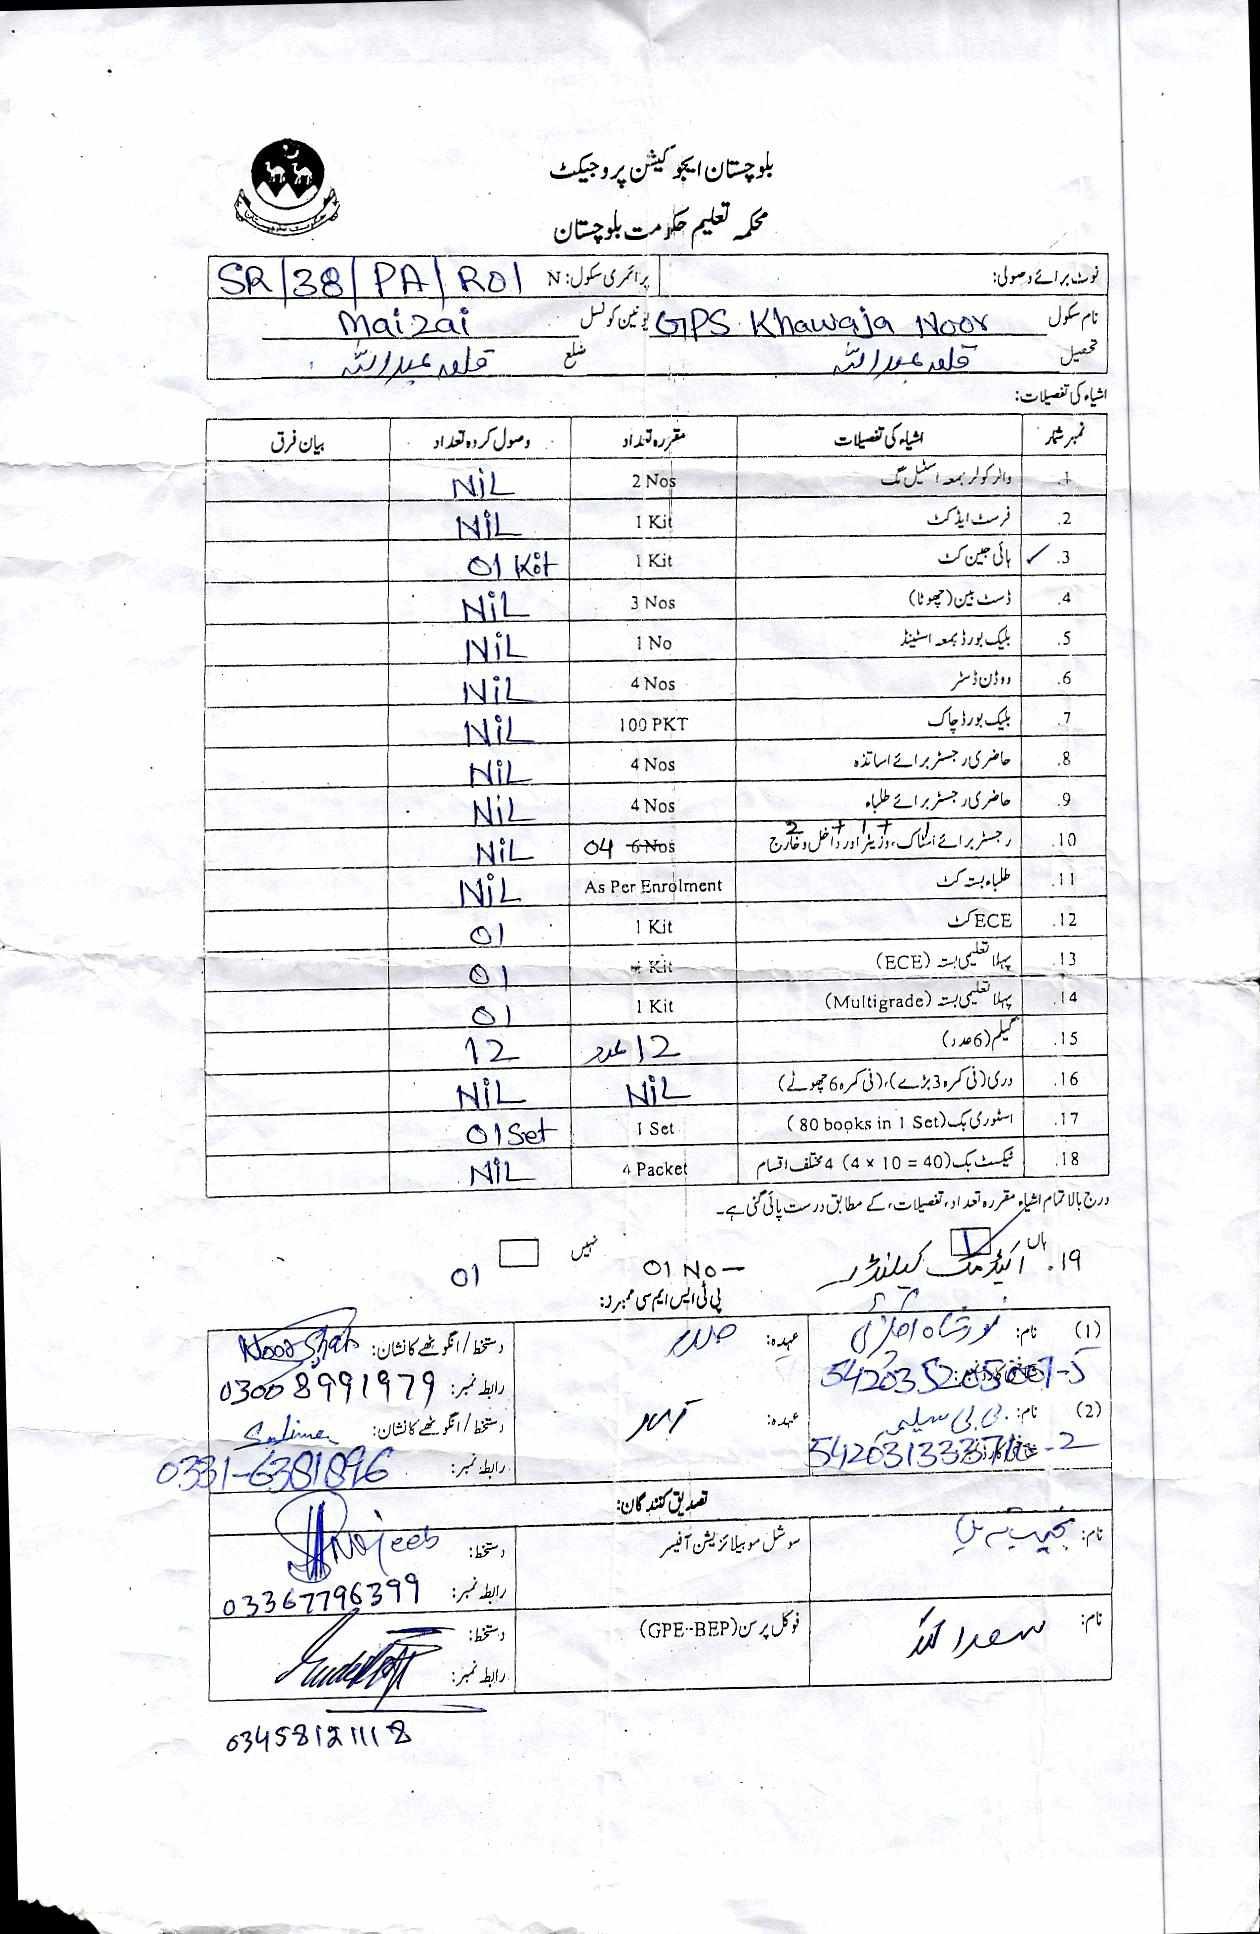 بلوچستان ایجوکیشن پروجیکٹ
محکمہ تعلیم حکومت بلوچستان
نوٹ برائے وصولی: پرائمری سکول: N SR/38/PA/R01
نام سکول GPS Khawaja Noor یونین کونسل Maizai
تحصیل قلعہ عبداللہ ضلع قلعہ عبداللہ
اشیاء کی تفصیلات:
نمبر شمار اشیاء کی تفصیلات مقررہ تعداد وصول کردہ تعداد بیان فرق
.1 واٹر کولر بمعہ اسٹیل مگ 2 Nos NiL
.2 فرسٹ ایڈ کٹ 1 Kit NiL
.3 ✓ ہائی جین کٹ 1 Kit 01 Kit
.4 ڈسٹ بین (چھوٹا) 3 Nos NiL
.5 بلیک بورڈ بمعہ اسٹینڈ 1 No NiL
.6 ووڈن ڈسٹر 4 Nos NiL
.7 بلیک بورڈ چاک 100 PKT NiL
.8 حاضری رجسٹر برائے اساتذہ 4 Nos NiL
.9 حاضری رجسٹر برائے طلباء 4 Nos NiL
2 + 1 + 1
.10 رجسٹر برائے اسٹاک، وزیٹر اور داخل و خارج 04 6 Nos NiL
.11 طلباء بستہ کٹ As Per Enrolment NiL
.12 ECE کٹ 1 Kit 01
.13 پہلا تعلیمی بستہ (ECE) Kit 01
.14 پہلا تعلیمی بستہ (Multigrade) 1 Kit 01
.15 گلیم (6 عدد) 12 عدد 12
.16 دری (فی کمرہ 3 بڑے)، (فی کمرہ 6 چھوٹے) NiL NiL
.17 اسٹوری بک (80 books in 1 Set) 1 Set 01 Set
.18 ٹیکسٹ بک (4 x 10 = 40) 4 مختلف اقسام 4 Packet NiL
درج بالا تمام اشیاء مقررہ تعداد، تفصیلات، کے مطابق درست پائی گئی ہے۔
ہاں نہیں
19. اکیڈمک کیلنڈر 01 No – 01
پی ٹی ایس ایم سی ممبرز:
(1) نام: نور شاہ عہدہ: صدر دستخط / انگوٹھے کا نشان: Noor Shah
رابطہ نمبر: 03008991979
(2) نام: بی بی سلیمہ عہدہ: دستخط / انگوٹھے کا نشان: Salima
رابطہ نمبر: 0331-6381896
تصدیق کنندگان:
نام: سوشل موبیلائزیشن آفیسر دستخط: Najeeb
رابطہ نمبر: 03367796399
نام: فوکل پرسن (GPE-BEP) دستخط:
رابطہ نمبر:
03458121118